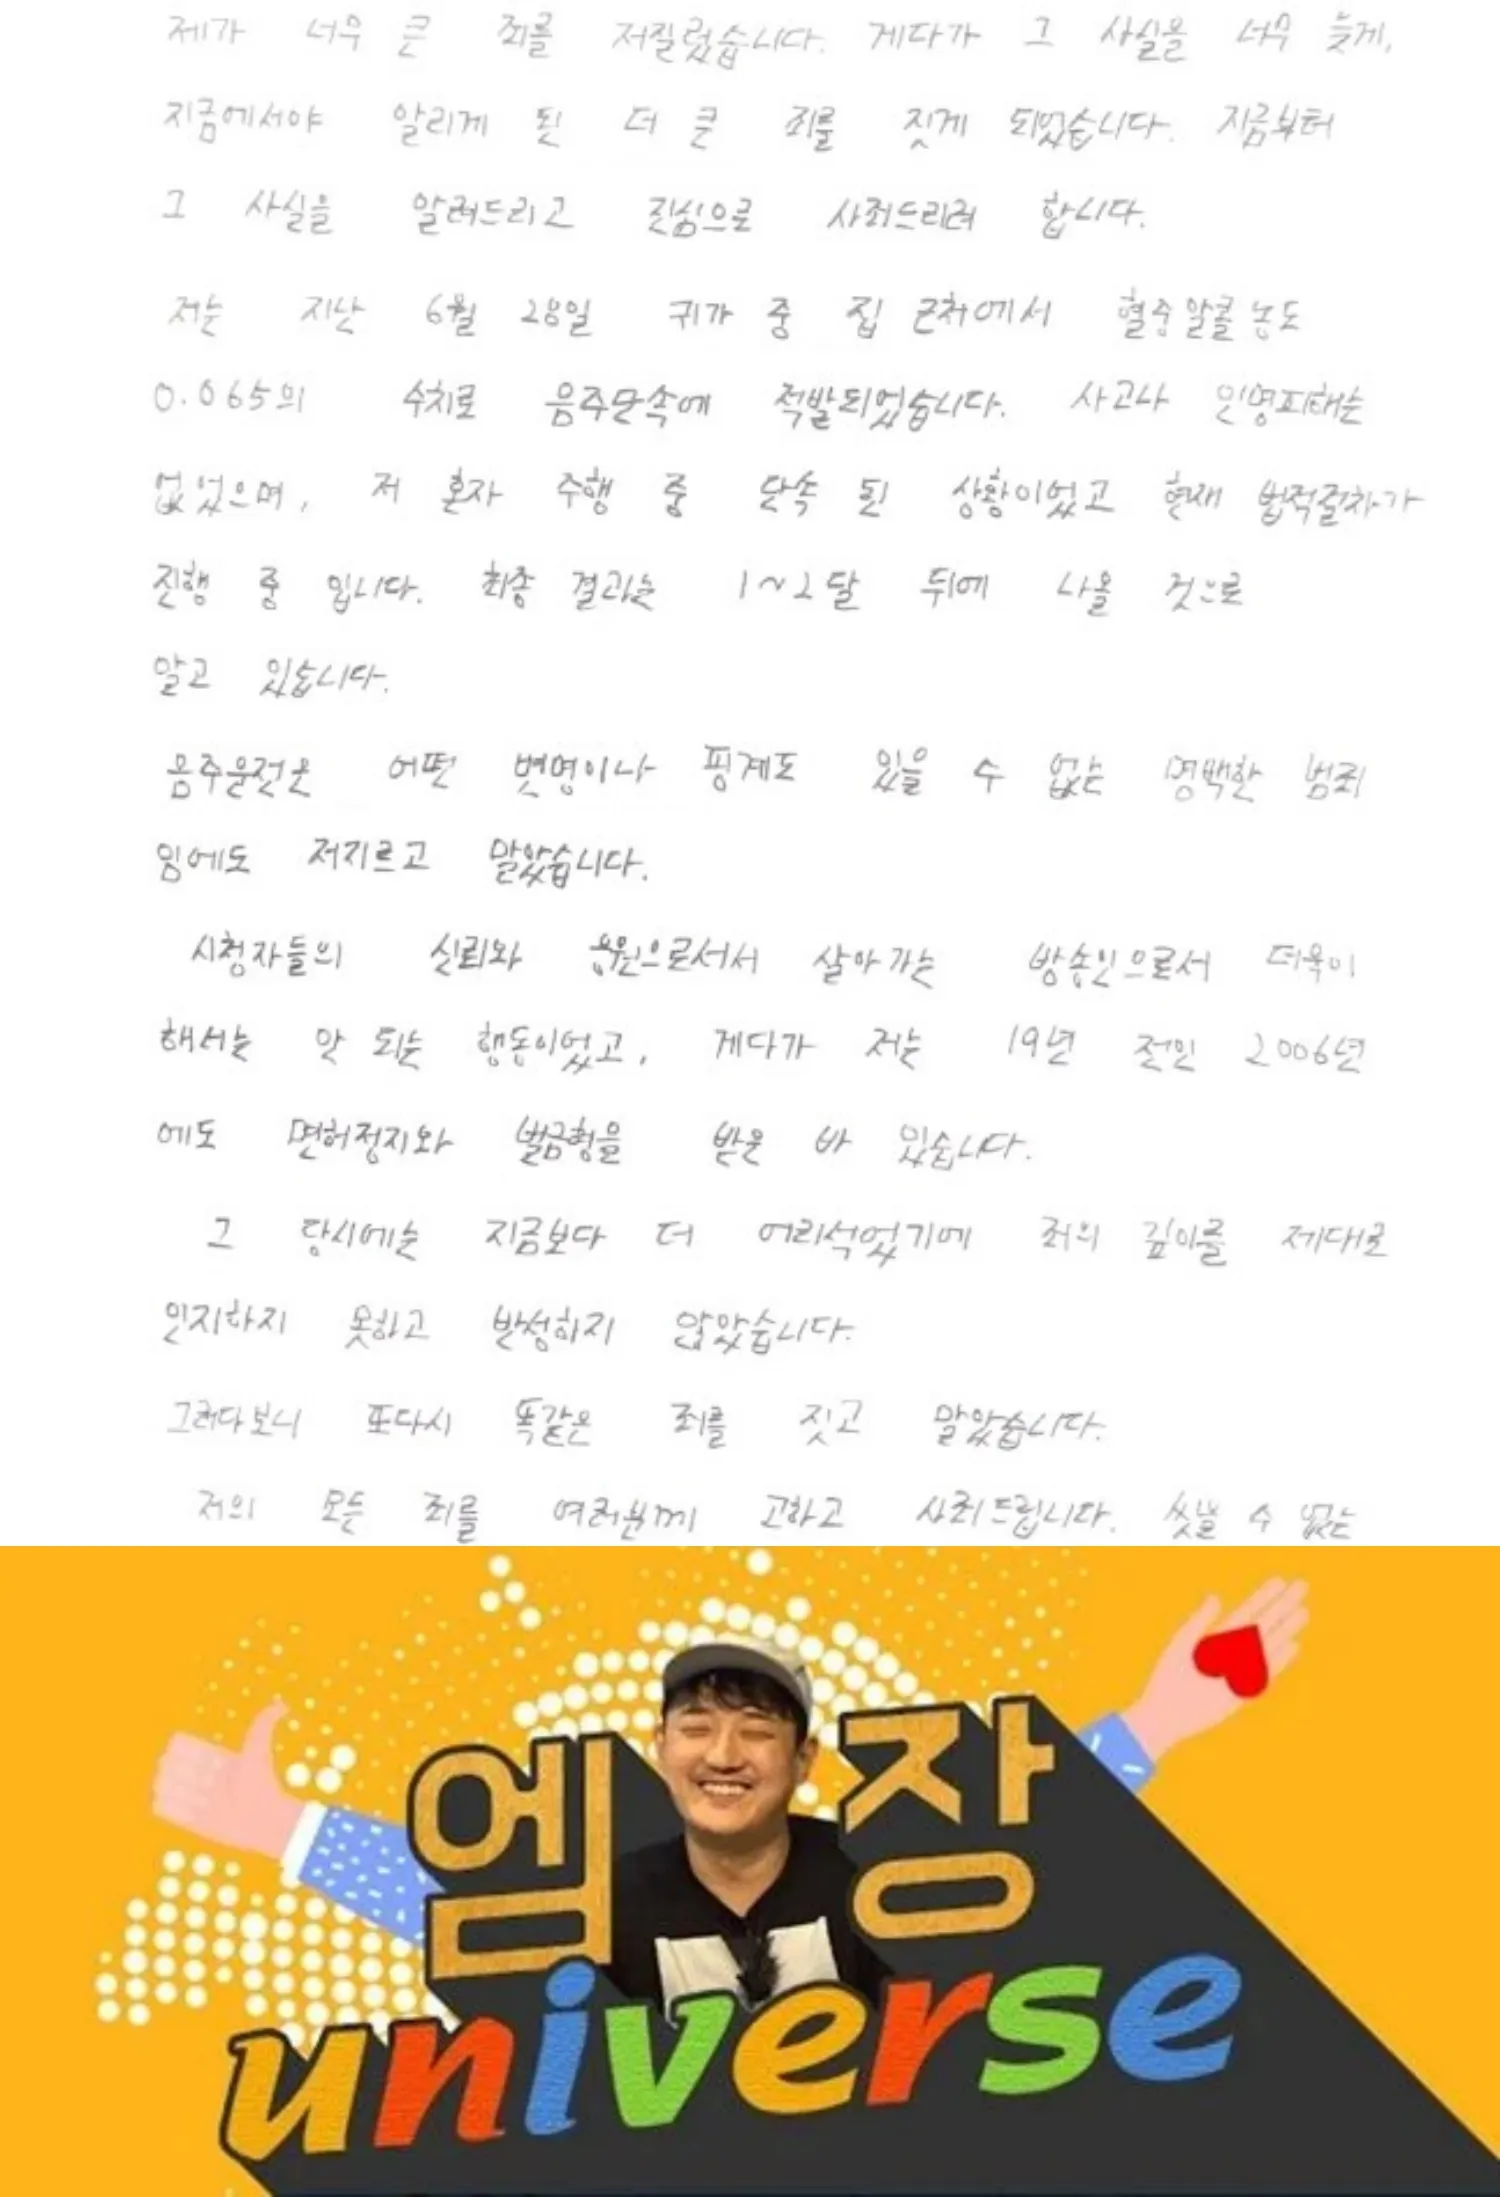 제가 너무 큰 죄를 저질렀습니다. 게다가 그 사실을 너무 늦게,
지금에서야 알리게 된 더 큰 죄를 짓게 되었습니다. 지금부터
그 사실을 알려드리고 진심으로 사죄드리려 합니다.
저는 지난 6월 28일 귀가 중 집 근처에서 혈중알콜농도
0.065의 수치로 음주단속에 적발되었습니다. 사고나 인명피해는
없었으며, 저 혼자 주행 중 단속 된 상황이었고 현재 법적절차가
진행 중 입니다. 최종 결과는 1~2달 뒤에 나올 것으로
알고 있습니다.
음주운전은 어떤 변명이나 핑계도 있을 수 없는 명백한 범죄
임에도 저지르고 말았습니다.
시청자들의 신뢰와 응원으로서서 살아가는 방송인으로서 더욱이
해서는 안 되는 행동이었고, 게다가 저는 19년 전인 2006년
에도 면허정지와 벌금형을 받은 바 있습니다.
그 당시에는 지금보다 더 어리석었기에 죄의 깊이를 제대로
인지하지 못하고 반성하지 않았습니다.
그러다보니 또다시 똑같은 죄를 짓고 말았습니다.
저의 모든 죄를 여러분께 고하고 사죄드립니다. 씻을 수 없는
엠장
universe